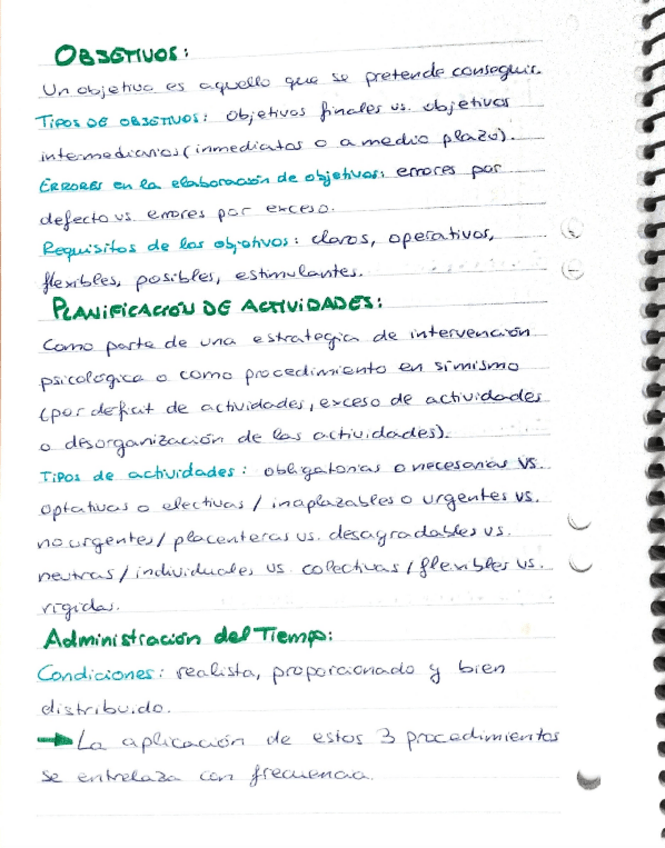 OBJETIVOS:
Un objetivo es aquello que se pretende conseguir.
TIPOS DE OBJETIVOS: objetivos finales vs. objetivos
intermediarios (inmediatos o a medio plazo).
ERRORES en la elaboración de objetivos: errores por
defecto vs. errores por exceso.
Requisitos de los objetivos: claros, operativos,
flexibles, posibles, estimulantes.
PLANIFICACIÓN DE ACTIVIDADES:
Como parte de una estrategia de intervención
psicológica o como procedimiento en si mismo
(por deficit de actividades, exceso de actividades
o desorganización de las actividades).
TIPOS de actividades: obligatorias o necesarias vs.
optativas o electivas / inaplazables o urgentes vs.
no urgentes / placenteras vs. desagradables vs.
neutras / individuales vs. colectivas / flexibles vs.
rígidas.
Administración del Tiempo:
Condiciones: realista, proporcionado y bien
distribuido.
→ La aplicación de estos 3 procedimientos
se entrelaza con frecuencia.